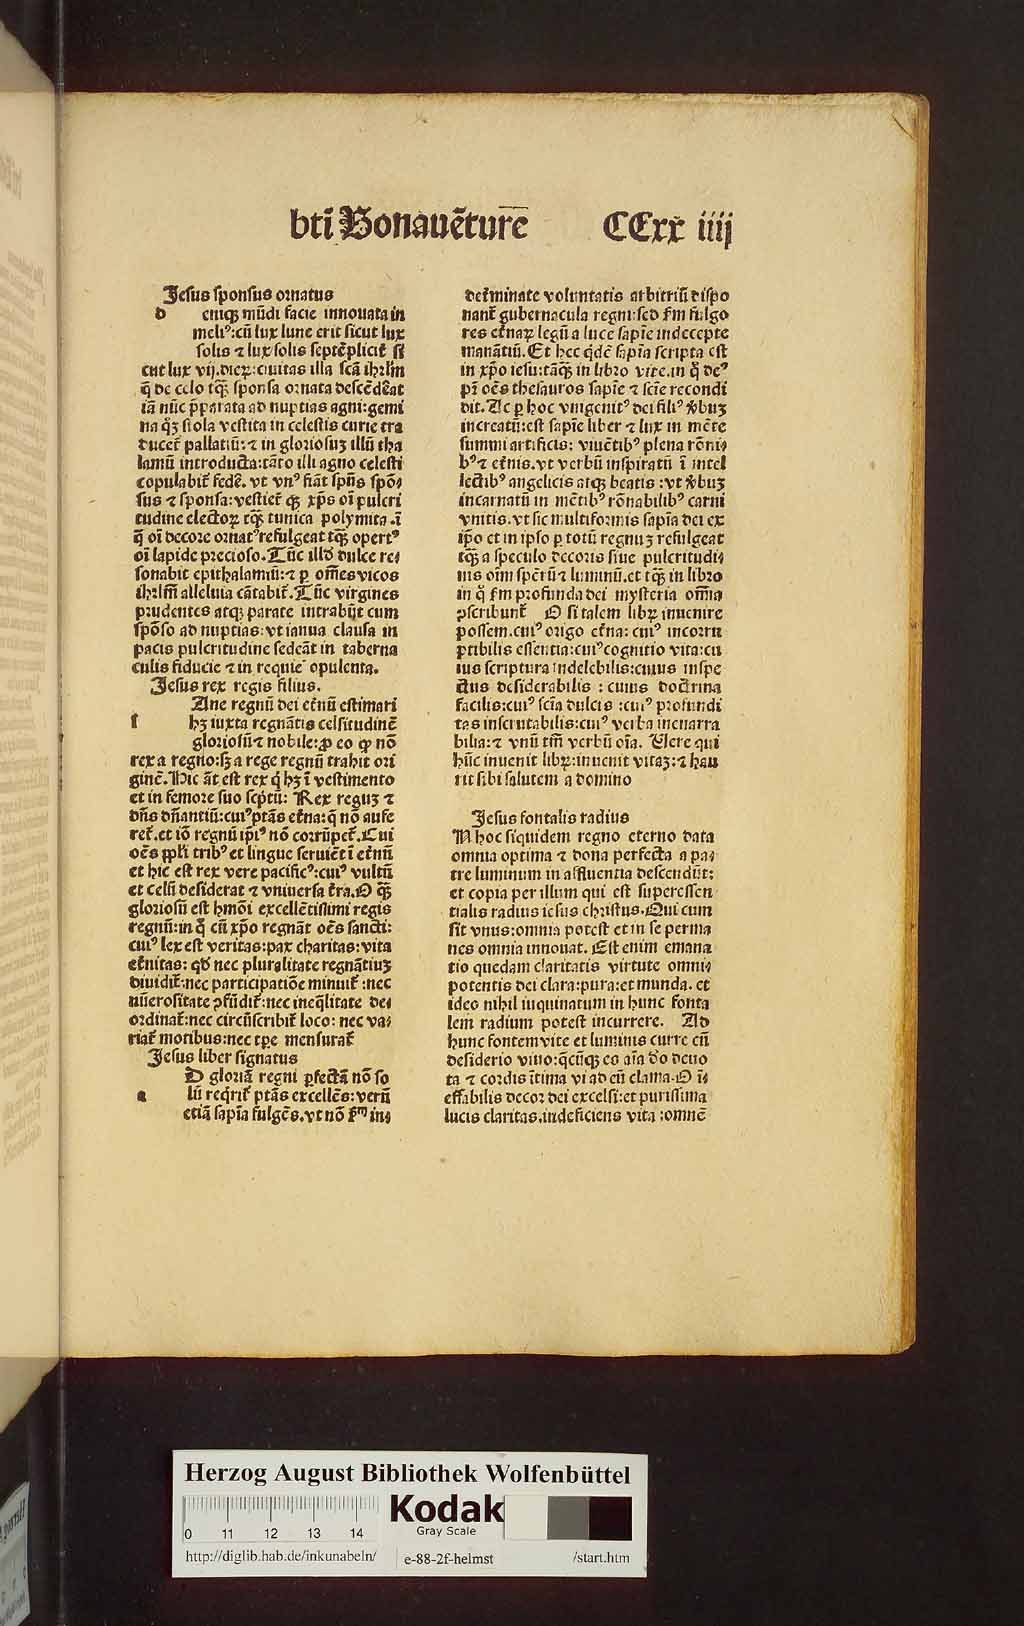 btī Bonauētur̄e CCxx iiij
Jesus sponsus ornatus
d eniqꝫ mūdi facie innouata in
meliꝰ:cū lux lune erit sicut lux
solis ⁊ lux solis septēplicit̄ si
cut lux vij.dieꝝ:ciuitas illa scā ihrlm̄
q̄ de celo tqꝫ̄ sponsa ornata descēdēat
iā nūc p̄parata ad nuptias agni:gemi
na qꝫ̄ stola vestita in celestis curie tra
ducet̄ pallatiū:⁊ in gloriosuꝫ illū tha
lamū introducta:tāto illi agno celesti
copulabit̄ fede. vt vnꝰ fiāt spūs spō⸗
sus ⁊ sponsa:vestiet̄ qꝫ xp̄s oī pulcri
tudine electoꝝ tqꝫ̄ tunica polymita.ī
q̄ oī decore ornatꝰ refulgeat tqꝫ̄ opertꝰ
oī lapide precioso.Tūc illd̄ dulce re⸗
sonabit epithalamiū:⁊ ꝑ om̄es vicos
ihrlm̄ alleluia cātabit̄.Tūc virgines
prudentes atqꝫ parate intrabūt cum
spōso ad nuptias:vt ianua clausa in
pacis pulcritudine sedeāt in taberna
culis fiducie ⁊ in requie opulenta.
Jesus rex regis filius.
Ane regnū dei et̄nū estimari
s hꝫ iuxta regnātis celsitudinē
gloriosū⁊ nobile:ꝓ eo qꝙ nō
rex a regno:sꝫ a rege regnū trahit ori
ginē.Hic āt est rex q̇ hꝫ ī vestimento
et in femore suo sc̄ptū: Rex reguꝫ ⁊
dn̄s dn̄antiū:cuiꝰ ptās et̄na:q̄ nō aufe
ret̄.et iō regnū ip̄iꝰ nō corrūpet̄.Cui
oēs ppl̄i tribꝰ et lingue seruiēt ī et̄nū
et hic est rex vere pacificꝰ:cuiꝰ vultū
et celū desiderat ⁊ vniuersa t̄ra.O qꝫ̄
gloriosū est hmōi excellētissimi regis
regnū:in q̇ cū xp̄o regnāt oēs sancti:
cuiꝰ lex est veritas:pax charitas:vita
et̄nitas: qd̄ nec pluralitate regnātiuꝫ
diuidit̄:nec participatiōe minuit̄ :nec
nūerositate ꝯfūdit̄:nec ineq̄litate de⸗
ordinat̄:nec circūscribit̄ loco: nec va⸗
riat̄ motibus:nec tp̄e mensurat̄
Jesus liber signatus
D gloriā regni ꝑfectā nō so
a lū req̇rit̄ ptās excellēs:verū
etiā sapīa fulgēs.vt nō s̄m in⸗
det̄minate voluntatis arbitriū dispo
nant̄ gubernacula regni:sed s̄m fulgo
res et̄naꝝ legū a luce sapīe indecepte
manātiū.Et hec q̇dē sapīa scripta est
in xp̄o iesu:tāqꝫ in libro vite.in q̇ deꝰ
pr̄ oēs thesauros sapīe ⁊ scīe recondi
dit.Ac ꝑ hoc vnigenitꝰ dei filiꝰ v̄buꝫ
increatū:est sapīe liber ⁊ lux in mēte
summi artificis: viuētibꝰ plena rōni⸗
bꝰ ⁊ et̄nis.vt verbū inspiratū ī intel
lectibꝰ angelicis atqꝫ beatis :vt v̄buꝫ
incarnatū in mētibꝰ rōnabilibꝰ carni
vnitis.vt sic multiformis sapīa dei ex
ip̄o et in ipso ꝑ totū regnuꝫ refulgeat
tqꝫ̄ a speculo decoris siue pulcritudi⸗
nis oīm sp̄erū⁊ luminū.et tqꝫ̄ in libro
in q̇ s̄m profunda dei mysteria om̄ia
ꝯscribunt̄ O si talem libꝝ inuenire
possem.cuiꝰ origo et̄na: cuiꝰ incorru
ptibilis essentia:cuiꝰ cognitio vita:cu
ius scriptura indelebilis:cuius inspe
ctus desiderabilis : cuius doctrina
facilis:cuiꝰ scīa dulcis :cuiꝰ profundi
tas inscrutabilis:cuiꝰ verba inenarra
bilia:⁊ vnū tm̄ verbū oīa. Uere qui
hūc inuenit libꝝ:inuenit vitaꝫ:⁊ hau
rit sibi salutem a domino
Jesus fontalis radius
N hoc siquidem regno eterno data
omnia optima ⁊ dona perfecta a pa⸗
tre luminum in affluentia descendūt:
et copia per illum qui est superessen
tialis radius iesus christus.Qui cum
sit vnus:omnia potest et in se perma
nes omnia innouat. Est enim emana
tio quedam claritatis virtute omni⸗
potentis dei clara:pura:et munda. et
ideo nihil inquinatum in hunc fonta
lem radium potest incurrere. Ad
hunc fontem vite et luminis curre cū
desiderio viuo:q̄cūqꝫ es aīa do deuo
ta ⁊ cordis ītima vi ad eū clama.O ī⸗
effabilis decor dei excelsi:et purissima
lucis claritas.indeficiens vita :omnē
Herzog August Bibliothek Wolfenbüttel
0 11 12 13 14
Kodak
Gray Scale
http://diglib.hab.de/inkunabeln/ e-88-2f-helmst /start.htm